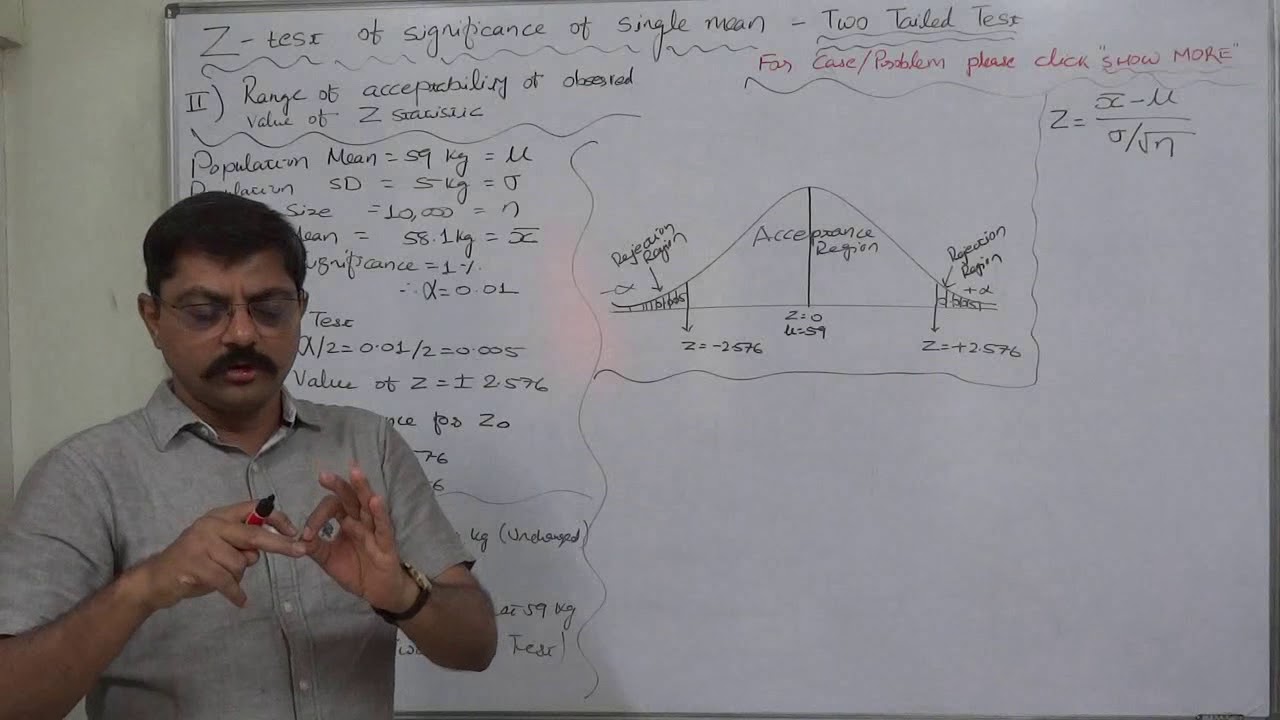 Z-test of significance of single mean - Two Tailed Test
For Case/Problem please click "SHOW MORE"
II) Range of acceptability of observed
value of Z statistic
Population Mean = 59 kg = μ
Population SD = 5 kg = σ
Size = 10,000 = n
Mean = 58.1 kg = x̄
Significance = 1%
∴ α = 0.01
Test
α/2 = 0.01/2 = 0.005
Value of Z = ± 2.576
for Z0
kg (Unchanged)
59 kg
Test)
Z = x̄ - μ
σ/√n
Acceptance
Region
Rejection
Region
-α
Rejection
Region
+α
Z=0
μ=59
Z = -2.576
Z = +2.576